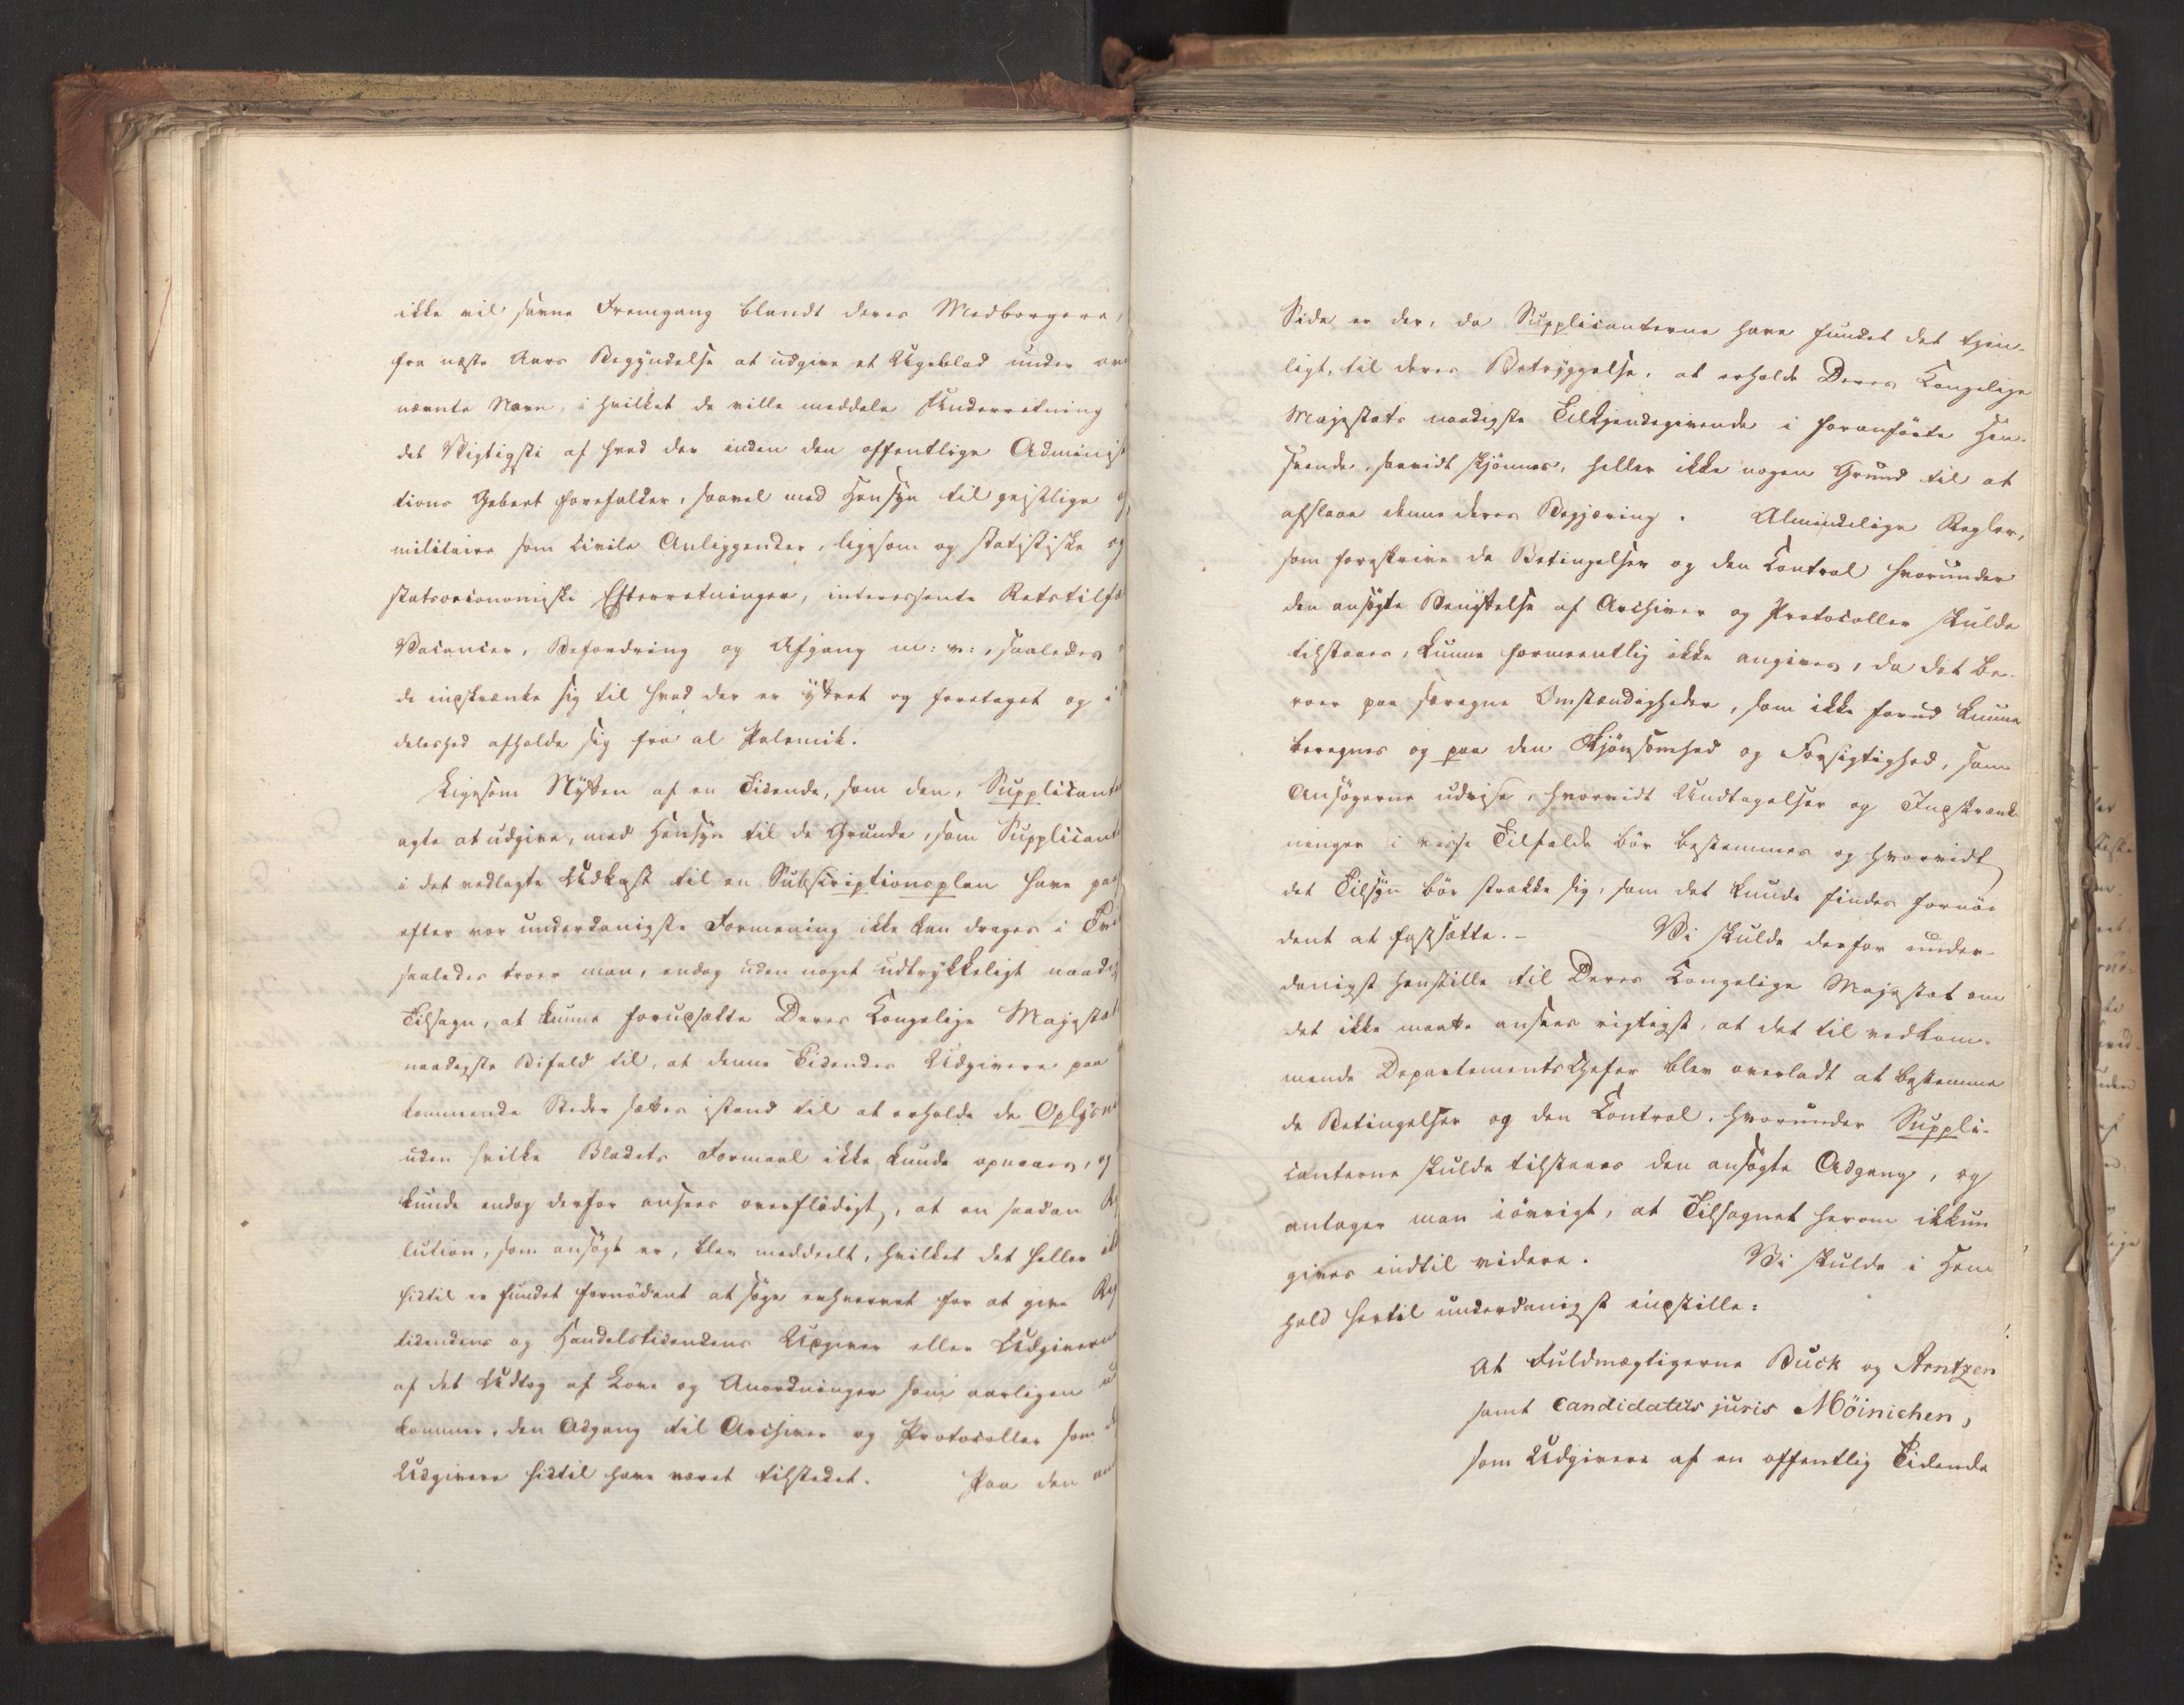 ikke vil savne Fremgang blandt deres Medborgere,
fra næste Aars Begyndelse at udgive et Ugeblad under
nævnte Navn, i hvilket de ville meddele Underretning
det Vigtigste af hvad der inden den offentlige Administ
tions Gebeet forefalder, saavel med Hensyn til geistlige og
militaire som Civile Anliggender, ligesom og statistiske og
statsoeconomiske Efterretninger, interessante Retstilfæ
Vacancer, Befordring og Afgang m: v:, saaledes
de indskrænke sig til hvad der er ÿttret og foretaget og i
deleshed afholde sig fra al Polemik.
Ligesom Nÿtten af en Tidende, som den, Supplicante
agte at udgive, med Hensyn til de Grunde, som Supplicant
i det vedlagte Udkast til en Subscriptionsplan have paa
efter vor underdanigste Formening ikke kan drages i Tvi
saaledes troer man, endog uden noget udtrykkeligt naadig
Tilsagn, at kunne forudsætte Deres Kongelige Majestæt
naadigste Bifald til, at denne Tidendes Udgivere paa
kommende Steder sættes istand til at erholde de Oplÿsn
uden hvilke Bladets Formaal ikke kunde opnaaes, og
kunde endog derfor ansees overflödigt, at en saadan
lution, som ansögt er, blev meddeelt, hvilket det heller
hidtil er fundet fornödent at söge erhvervet for at give
tidendens og Handelstidendens Udgiver eller Udgiverne
af det Udtog af Love og Anordninger som aarligen
kommer, den Adgang til Archiver og Protocoller som
Udgivere hidtil have været tilstedet. Paa den
Side er der, da Supplicanterne have fundet det tjen-
ligt, til deres Betryggelse, at erholde Deres Kongelige
Majestæts naadigste Tilkjendegivende i foranförte Hen-
seende, saavidt skjönnes, heller ikke nogen Grund til at
afslaae denne deres Begjæring. Almindelige Regler,
som foreskrive de Betingelser og den Control hvorunder
den ansögte Benÿttelse af Archiver og Protocoller skulde
tilstaaes, kunne formeentlig ikke angives, da det be-
roer paa særegne Omstændigheder, som ikke forud kunne
beregnes og paa den Skjönsomhed og Forsigtighed, som
Ansögerne udvise, hvorvidt Undtagelser og Indskrænk-
ninger i visse Tilfælde bör bestemmes og hvorvidt
det Tilsÿn bör strække sig, som det kunde findes fornö-
dent at fastsætte. – Vi skulde derfor under-
danigst henstille til Deres Kongelige Majestæt om
det ikke maatte ansees rigtigst, at det til vedkom-
mende Departements Chefer blev overladt at bestemme
de Betingelser og den Control, hvorunder Suppli-
canterne skulde tilstaaes den ansögte Adgang, og
antager man iövrigt, at Tilsagnet herom ikkun
gives indtil videre. Vi skulde i Hen-
hold hertil underdanigst indstille:
At Fuldmægtigerne Buck og Arntzen
samt Candidatus juris Möinichen,
som Udgivere af en offentlig Tidende